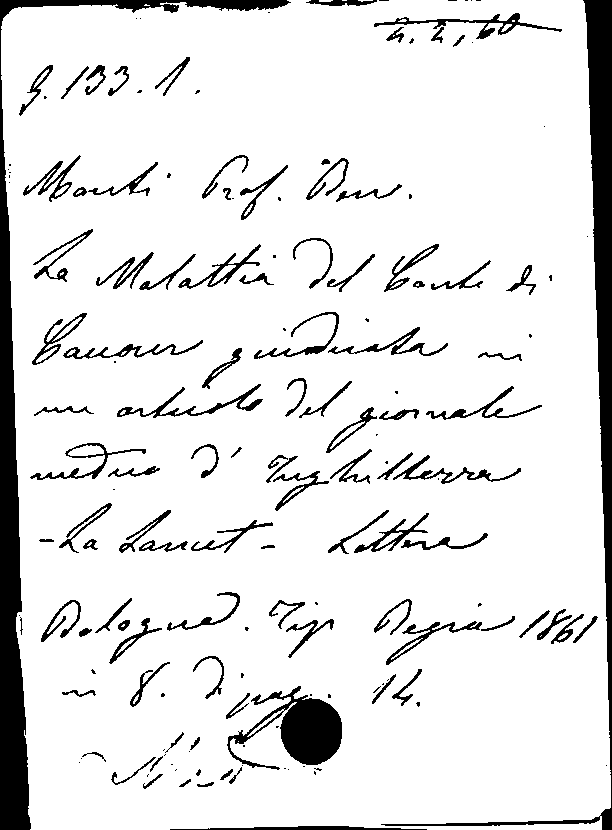 2.2,60
9.133.1.
Monti Prof. Ben.
La Malattia del Conte di
Cavour giudicata in
un articolo del giornale
medico d' Inghilterra
-La Lancet- Lettera
Bologna. Tip Regia 1861
in 8. di pag. 14.